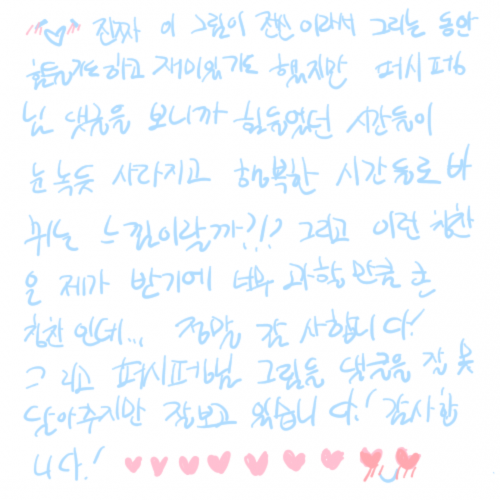 진짜 이 그림이 전신이라서 그리는 동안
힘들기도하고 재미있기도 했지만 퍼시퍼
님 댓글을 보니까 힘들었던 시간들이
눈녹듯 사라지고 행복한 시간들로 바
뀌는 느낌이랄까?!? 그리고 이런 칭찬
을 제가 받기에 너무 과할만큼 큰
칭찬인데... 정말 감사합니다!
그리고 퍼시퍼님 그림들 댓글을 잘 못
달아주지만 잘보고 있습니다! 감사합
니다!